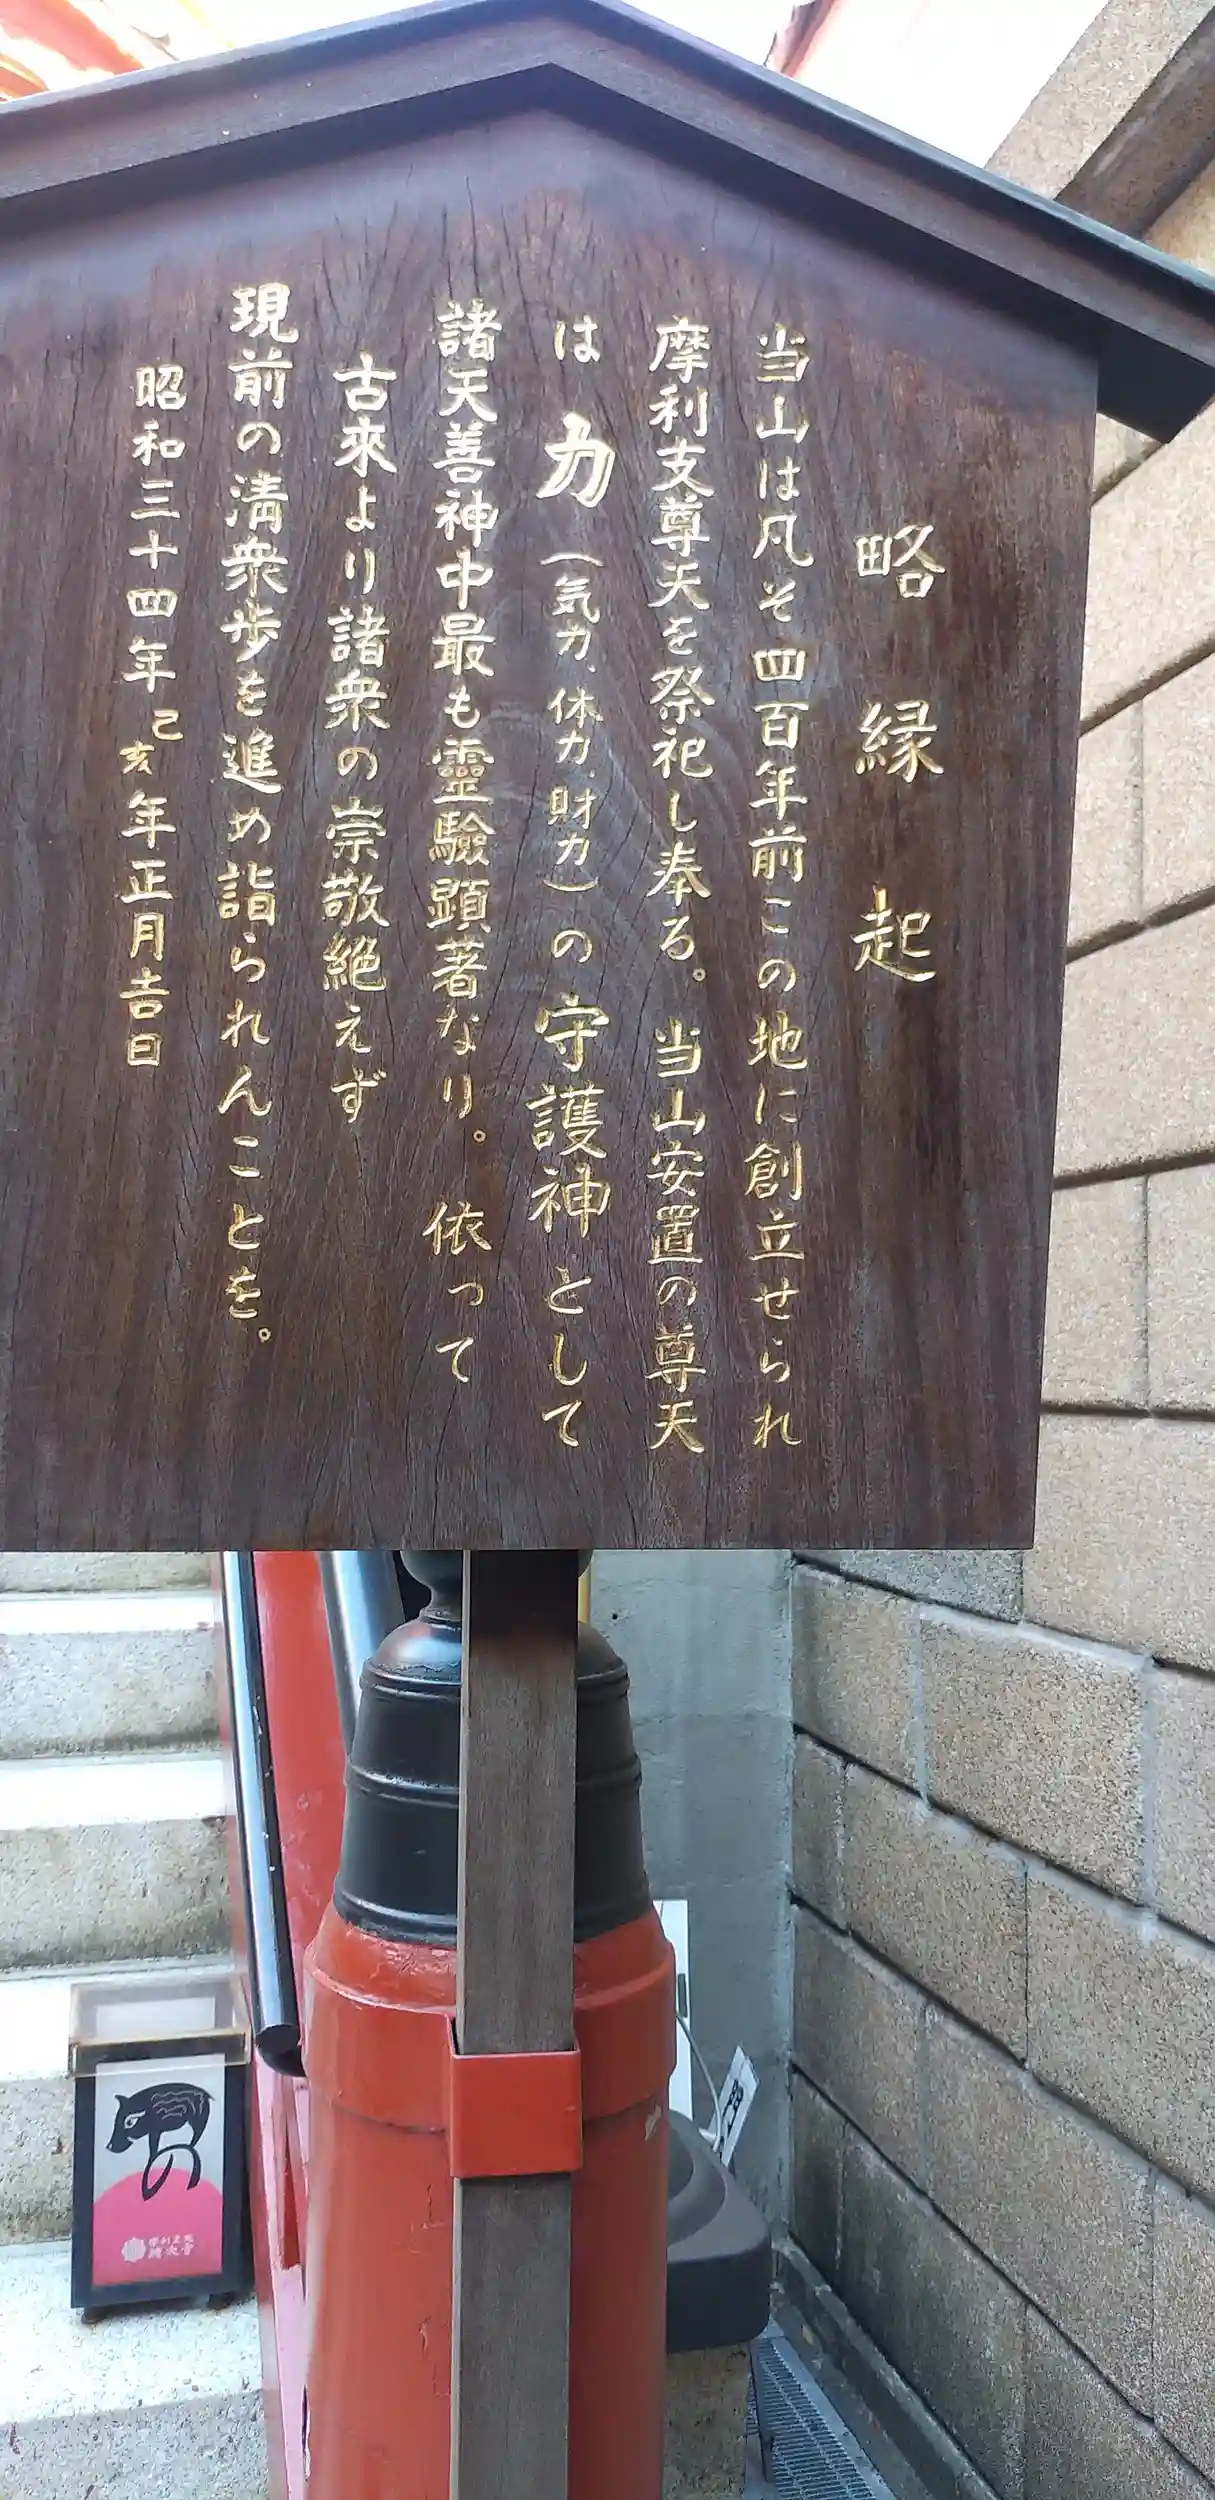 略縁起
当山は凡そ四百年前この地に創立せられ
摩利支尊天を祭祀し奉る。当山安置の尊天
は力(気力、体力、財力)の守護神として
諸天善神中最も霊驗顕著なり。依って
古來より諸衆の崇敬絶えず
現前の淸衆歩を進め詣られんことを。
昭和三十四年己亥年正月吉日
摩利支天
德大寺